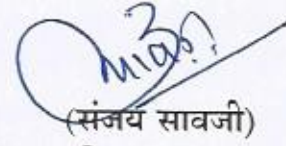 (संजय सावजी)